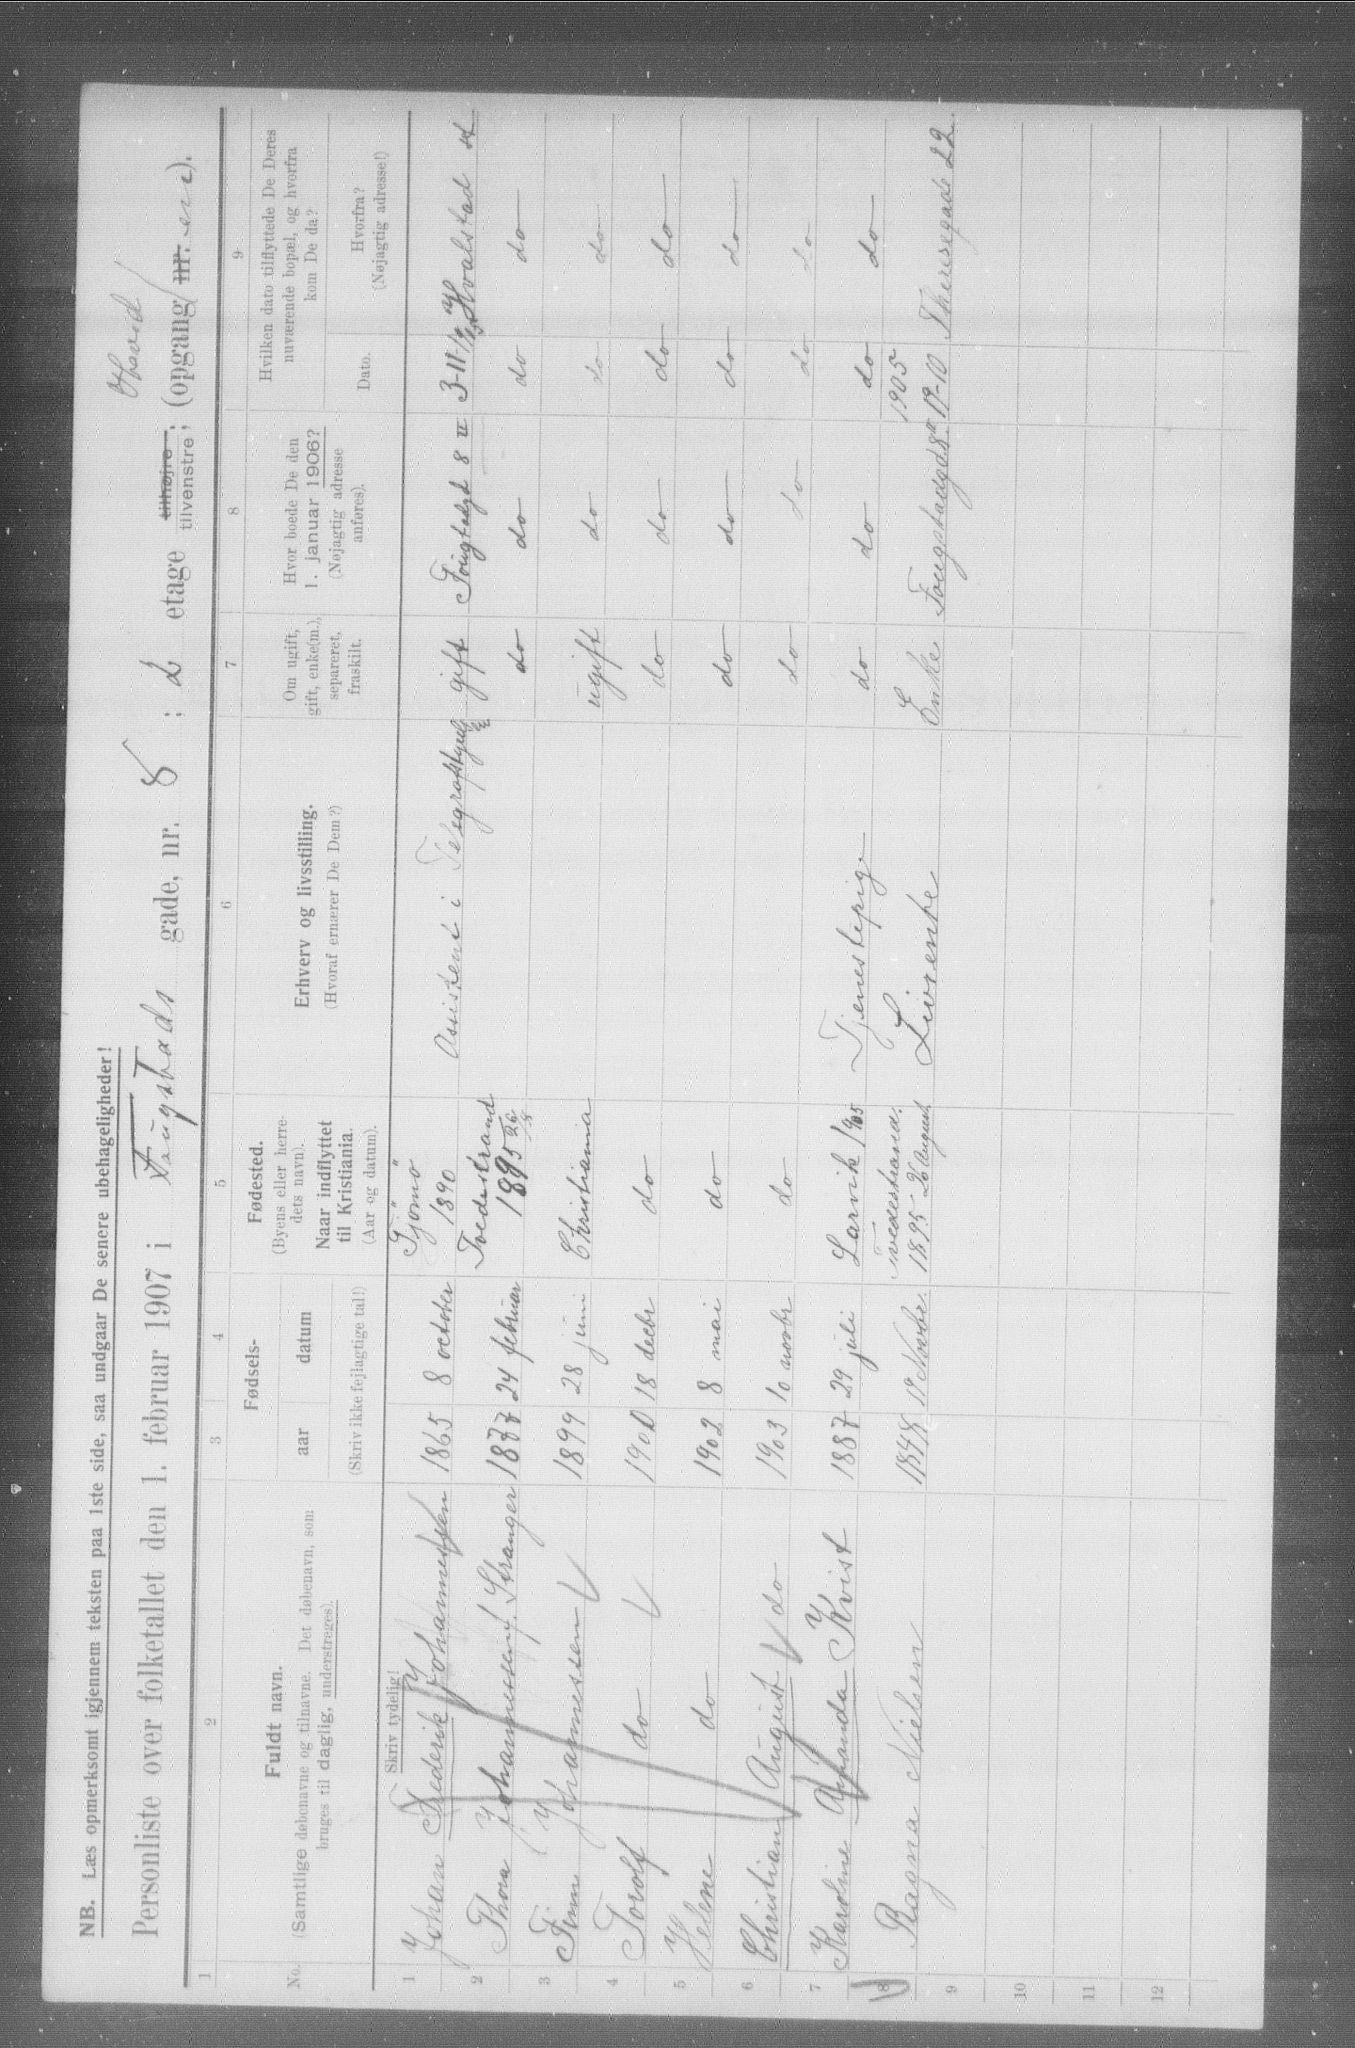 NB. Læs opmerksomt igjennem teksten paa 1ste side, saa undgaar De senere ubehageligheder!
Personliste over folketallet den 1. februar 1907 i Fougstads gade, nr. 8 ; 2 etage tilhøjre tilvenstre; (opgang nr.
1 2 3 4 5 6 7 8 9
No. Fuldt navn. (Samtlige døbenavne og tilnavne. Det døbenavn, som bruges til daglig, understreges).
Fødsels- aar datum (Skriv ikke fejlagtige tal!)
Fødested. (Byens eller herredets navn). Naar indflyttet til Kristiania. (Aar og datum).
Erhverv og livsstilling. (Hvoraf ernærer De Dem?)
Om ugift, gift, enke(m.), separeret, fraskilt.
Hvor boede De den 1. januar 1906? (Nøjagtig adresse anføres).
Hvilken dato tilflyttede De Deres nuværende bopæl, og hvorfra kom De da?
Dato. Hvorfra? (Nøjagtig adresse!)
Skriv tydelig!
1 Johan Frederik Johannessen 1865 8 october Tjömö 1890 Assistent i gift 8 II 3-11- Hvalstad st
2 Thora Johannessen f. Stranger 1877 24 februar Tvedestrand 1895 26/8 do do do do
3 Finn Johannessen 1899 28 juni Christiania ugift do do do
4 Torolf do 1900 18 decbr do do do do do
5 Helene do 1902 8 mai do do do do do
6 Christian August do 1903 10 novbr do do do do do
7 Karoline Amanda Kvist 1887 29 juli Larvik Tjenestepige do do do do
8 Ragna Nielsen 1848 18 Novbr. Tvedestrand. 1895 26 August Livrente Enke Fougstadgd 8 1905 19-10 Theresegade 22.
9
10
11
12